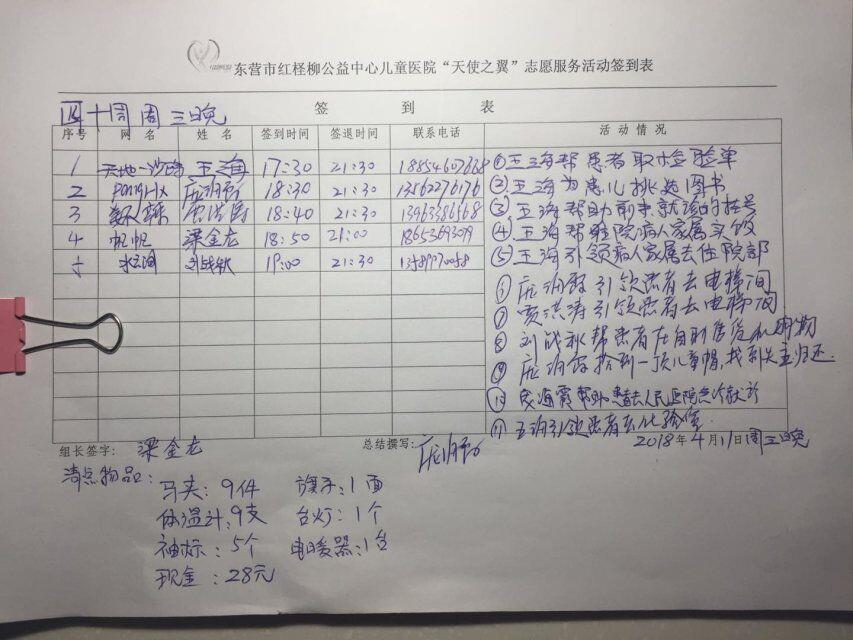 东营市红柽柳公益中心儿童医院“天使之翼”志愿服务活动签到表
签 到 表
四十周 周三晚
序号 网名 姓名 签到时间 签退时间 联系电话 活动情况
1 天地一沙鸥 王海 17:30 21:30
2 18:30 21:30 13562276176
3 18:40 21:30 13963386568
4 帆帆 梁金龙 18:50 21:00 1865369309
5 水云间 刘战秋 19:00 21:30
①王海帮患者取检验单
②王海为患儿挑选图书
③王海帮助前来就诊的挂号
④王海帮住院病人家属买饭
⑤王海引领病人家属去住院部
⑥ 引领患者去电梯间
⑦贾洪涛引领患者去电梯间
⑧刘战秋帮患者在自动售货机购物
⑨ 捡到一顶儿童帽,找到失主归还
⑩ 帮助患者去人民医院急诊就诊
⑪王海引领患者去化验室
组长签字: 梁金龙 总结撰写:
2018年4月11日周三晚
清点物品:
马夹:9件 旗子:1面
体温计:9支 台灯:1个
袖标:5个 电暖器:1台
现金:28元